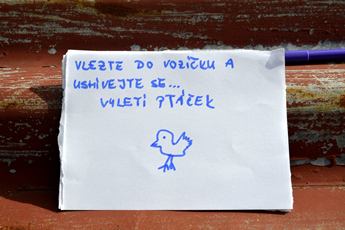 VLEZTE DO VOZÍČKU A
USMÍVEJTE SE...
VYLETÍ PTÁČEK